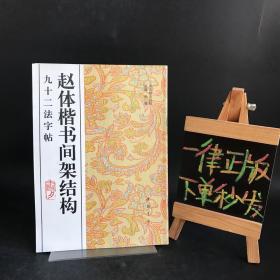 赵体楷书间架结构
九十二法字帖
一律正版
下单秒发